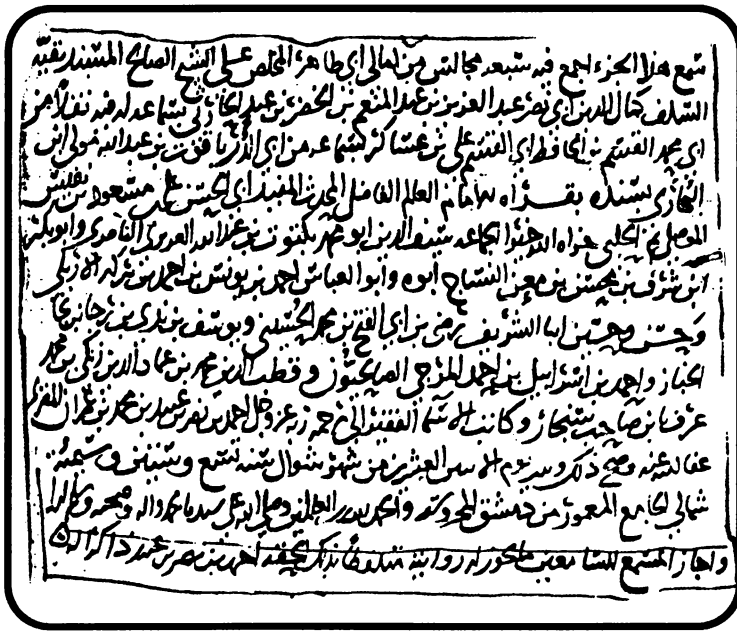 سمع هذا الجزء اجمع فيه سبعة مجالس من امالي ابي طاهر المخلص على الشيخ الصالح المسند بقية
السلف كمال الدين ابي نصر عبد العزيز بن عبد المنعم بن الخضر بن عبد الحارثي بسماعه له فيه نقلا من
ابي محمد القسم بن الحافظ ابي القسم علي بن عساكر بسماعه من ابي الدر ياقوت بن عبد الله مولى ابن
البخاري بسنده بقراءة الامام العالم الفاضل المحدث المفيد ابي الحسن علي بن مسعود بن نفيس
الموصلي ثم الحلبي جزاه الله خيرا الجماعة سيف الدين ابو محمد بكتوت بن عبد الله العزيزي الناصري وابو بكر
ابن شرف بن محسن بن معن النساج ابوه وابو العباس احمد بن يونس بن احمد بن بركة الاربلي
وحسن وحسين ابنا الشريف بن ابي الفتح بن محمد الحسيني ويوسف بن
الخباز واحمد بن اسرائيل بن احمد الصالحيون وقطب الدين محمد بن عماد الدين زنكي بن محمد
عرف بابن صاحب سنجار وكاتب الاسماء الفقير الى رحمة ربه عز وجل احمد بن نصر بن عبيد بن محمد بن
عفا الله عنه وصح ذلك وثبت يوم الاثنين العشرين من شهر شوال سنة تسع وستين وستمئة
شمالي الجامع المعمور من دمشق المحروسة والحمد لله رب العالمين وصلى الله على سيدنا محمد واله وصحبه
واجاز المسمع للسامعين ما يجوز له روايته متلفظا بذلك كتبه احمد بن نصر بن عبيد